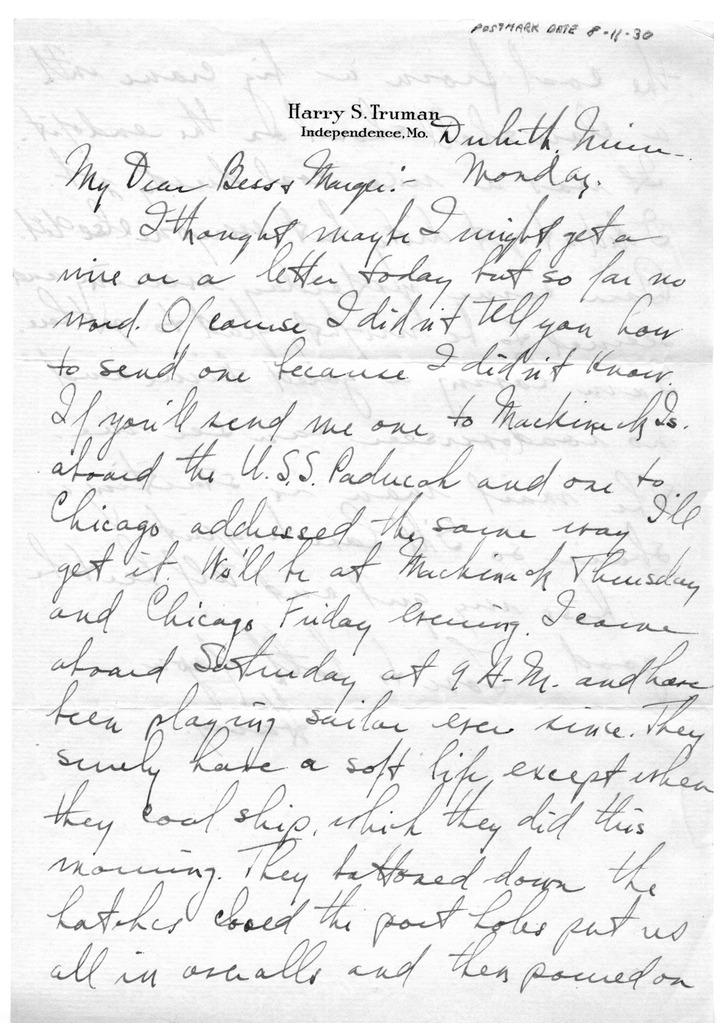 POSTMARK DATE 8-11-30
Harry S. Truman
Independence, Mo.
Duluth, Minn.
My Dear Bess & Margie:- Monday.
I thought maybe I might get a
wire or a letter today but so far no
word. Of course I didn't tell you how
to send one because I didn't know.
If you'll send me one to Mackinack Is.
aboard the U.S.S. Paducah and one to
Chicago addressed the same way I'll
get it. We'll be at Mackinack Thursday
and Chicago Friday evening. I came
aboard Saturday at 9 A.M. and have
been playing sailor ever since. They
surely have a soft life, except when
they coal ship, which they did this
morning. They battoned down the
hatches closed the port holes put us
all in overalls and then poured on